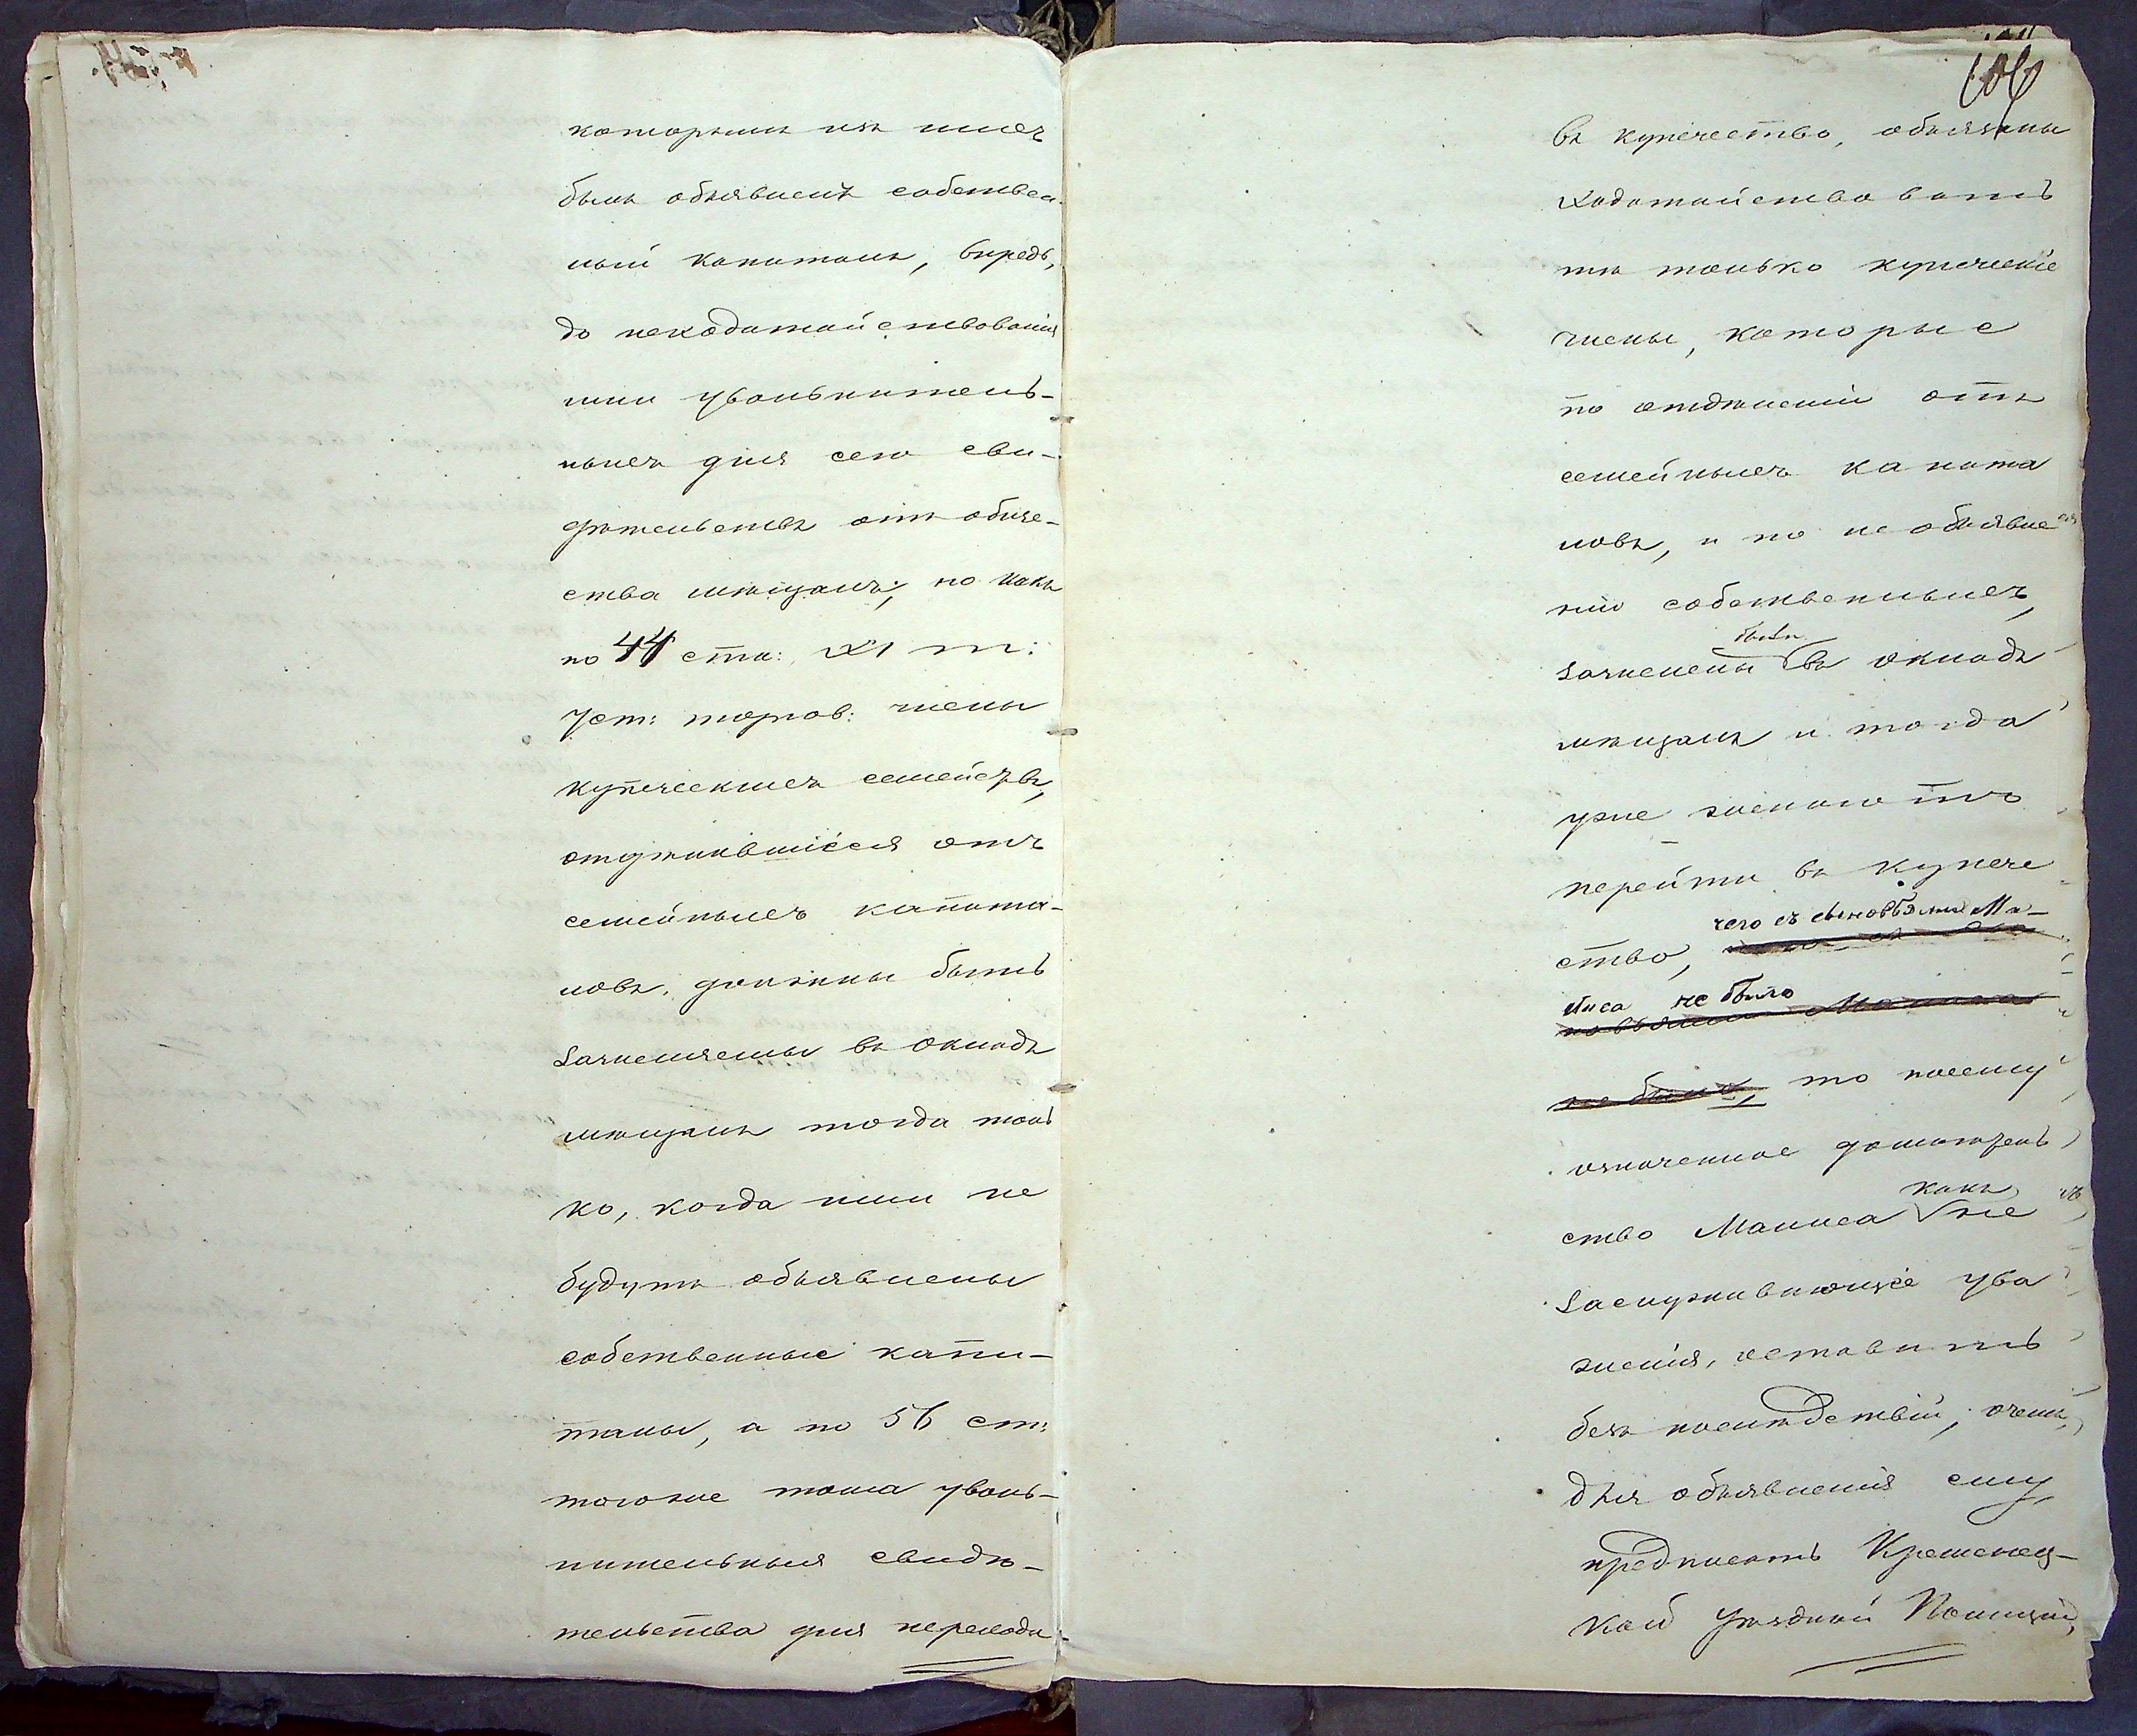 которыми изъ нихъ
былъ объявленъ собствен-
ный капиталъ, впредь,
до исходатайствованія
ими увольнитель-
ныхъ для сего сви-
дѣтельствъ отъ обще-
ства мѣщанъ; но какъ
по 44 ста: XI т:
Уст: торгов: члены
купеческихъ семействъ,
отдѣлившіеся отъ
семейныхъ капита-
ловъ, должны быть
зачисляемы въ окладъ
мѣщанъ тогда толь
ко, когда ими не
будутъ объявлены
собственные капи-
талы, а по 56 ст:
тогоже тома уволь-
нительныя свидѣ-
тельства для перехода
106
въ купечество, обязаны
ходатайствовать
тѣ только купеческіе
члены, которые
по отдѣленіи отъ
семейныхъ капита
ловъ, и по необъявле
нію собственныхъ,
были
зачислены въ окладъ
мѣщанъ и тогда
уже желаютъ
перейти въ купече
чего съ сыновьями Ма-
ство,
лиса не было
новьями Малиса
не было, то посему
означенное домогатель
какъ
ство Малиса не
заслуживающее ува
женія, оставить
безъ послѣдствій; о чемъ,
для объявленія ему,
предписать Кременец-
кой Уѣздной Полиціи,